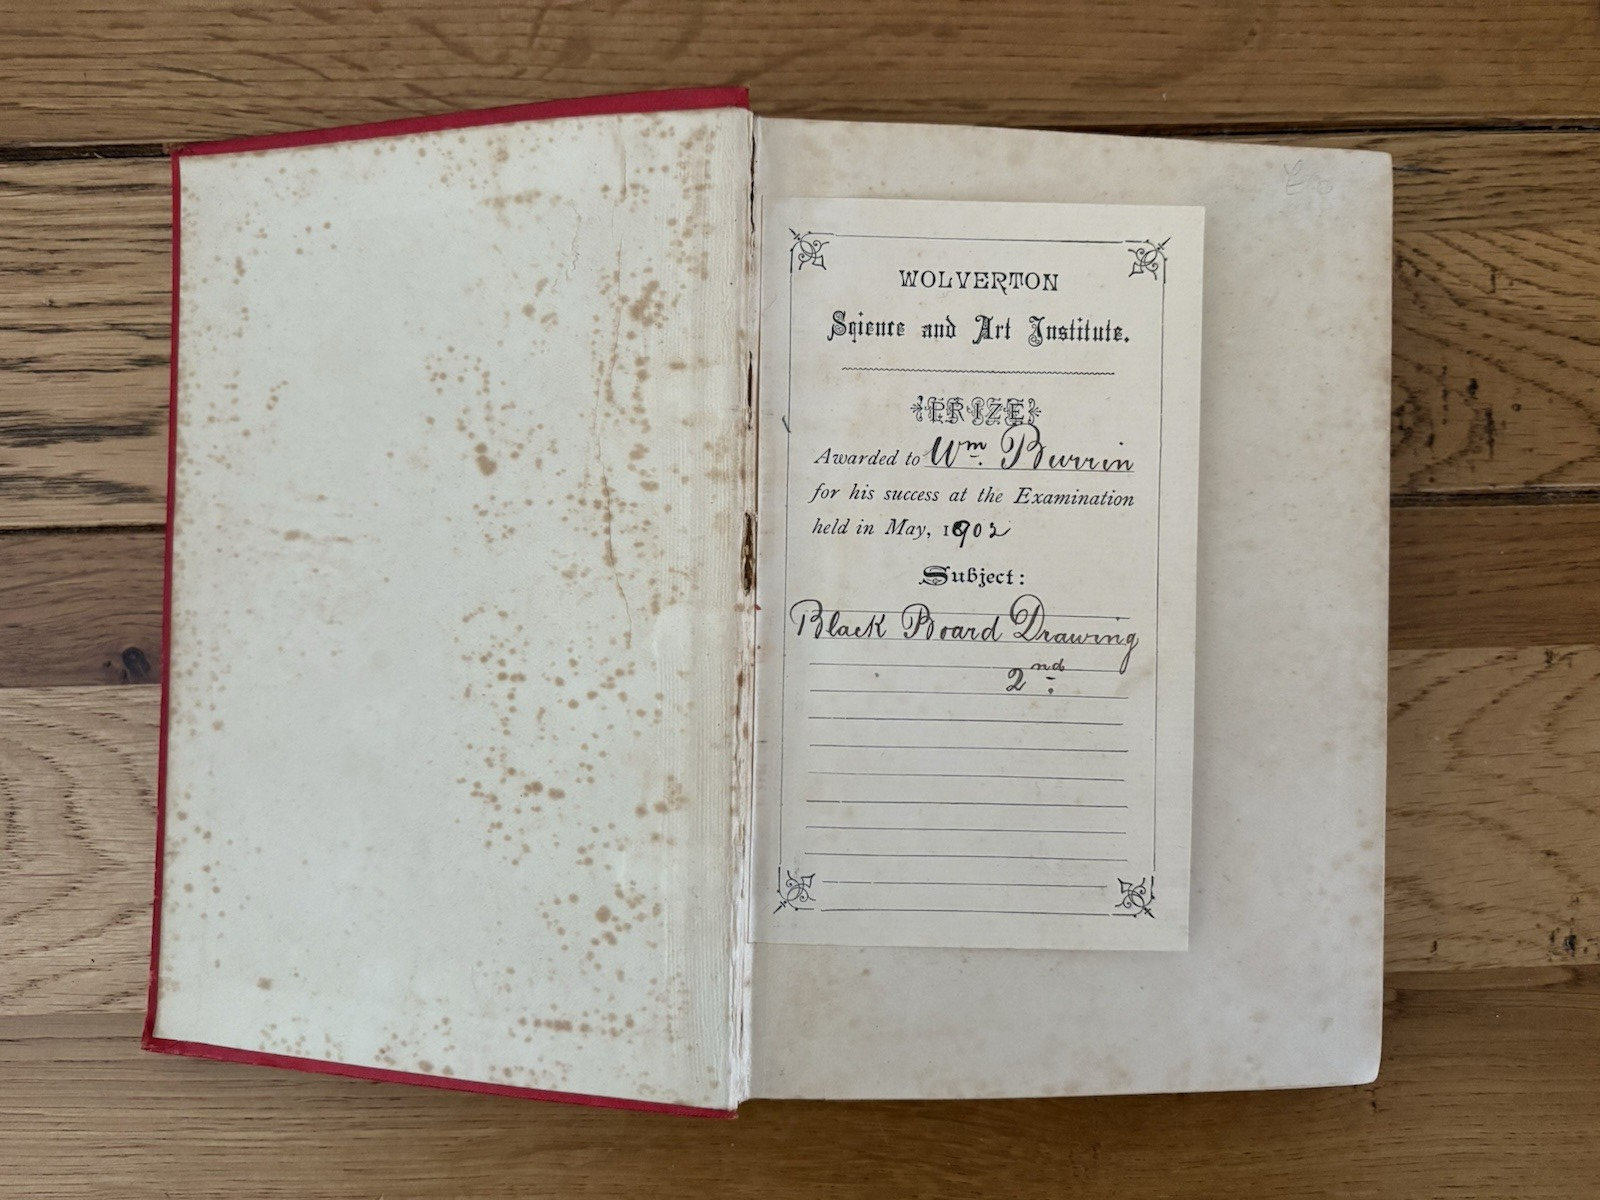 £10
WOLVERTON
Science and Art Institute.
PRIZE
Awarded to Wm. Burrin
for his success at the Examination
held in May, 1902
Subject:
Black Board Drawing
2nd.